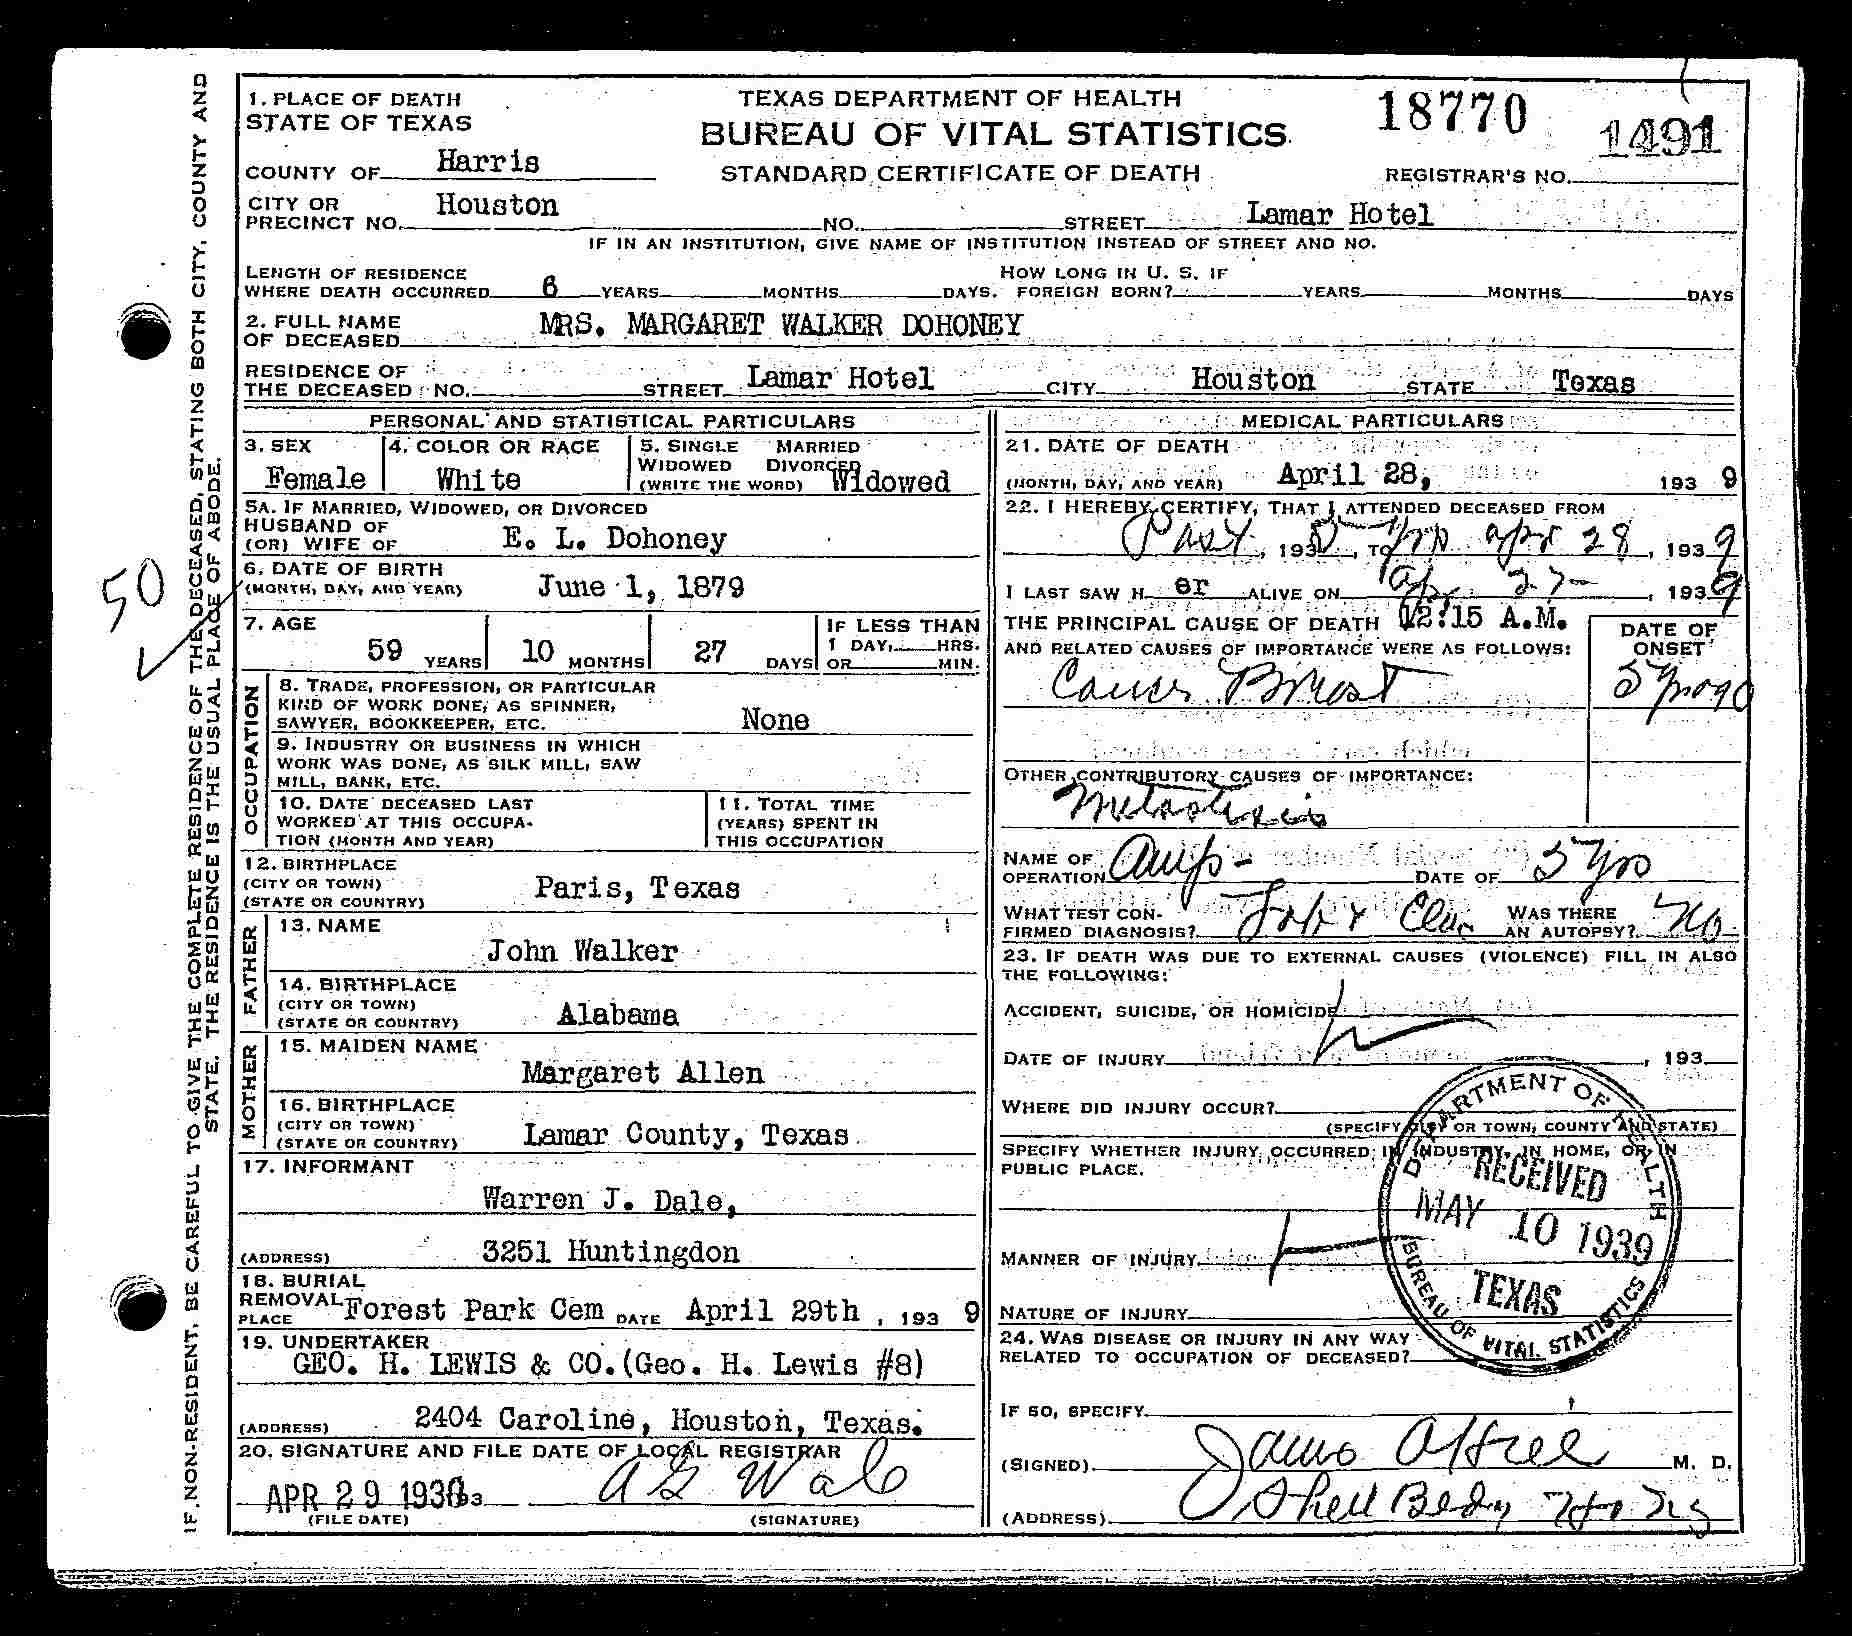 1. PLACE OF DEATH
STATE OF TEXAS
TEXAS DEPARTMENT OF HEALTH
BUREAU OF VITAL STATISTICS
STANDARD CERTIFICATE OF DEATH
18770
1491
REGISTRAR'S NO.
COUNTY OF Harris
CITY OR PRECINCT NO. Houston NO. STREET Lamar Hotel
IF IN AN INSTITUTION, GIVE NAME OF INSTITUTION INSTEAD OF STREET AND NO.
LENGTH OF RESIDENCE
WHERE DEATH OCCURRED 6 YEARS MONTHS DAYS. HOW LONG IN U. S. IF FOREIGN BORN? YEARS MONTHS DAYS
2. FULL NAME
OF DECEASED MRS. MARGARET WALKER DOHONEY
RESIDENCE OF
THE DECEASED NO. STREET Lamar Hotel CITY Houston STATE Texas
PERSONAL AND STATISTICAL PARTICULARS
3. SEX
Female
4. COLOR OR RACE
White
5. SINGLE MARRIED
WIDOWED DIVORCED
(WRITE THE WORD) Widowed
5A. IF MARRIED, WIDOWED, OR DIVORCED
HUSBAND OF
(OR) WIFE OF E. L. Dohoney
6. DATE OF BIRTH
(MONTH, DAY, AND YEAR) June 1, 1879
7. AGE
59 YEARS 10 MONTHS 27 DAYS
IF LESS THAN
1 DAY, HRS.
OR MIN.
OCCUPATION
8. TRADE, PROFESSION, OR PARTICULAR
KIND OF WORK DONE, AS SPINNER,
SAWYER, BOOKKEEPER, ETC. None
9. INDUSTRY OR BUSINESS IN WHICH
WORK WAS DONE, AS SILK MILL, SAW
MILL, BANK, ETC.
10. DATE DECEASED LAST
WORKED AT THIS OCCUPA-
TION (MONTH AND YEAR)
11. TOTAL TIME
(YEARS) SPENT IN
THIS OCCUPATION
12. BIRTHPLACE
(CITY OR TOWN)
(STATE OR COUNTRY) Paris, Texas
FATHER
13. NAME
John Walker
14. BIRTHPLACE
(CITY OR TOWN)
(STATE OR COUNTRY) Alabama
MOTHER
15. MAIDEN NAME
Margaret Allen
16. BIRTHPLACE
(CITY OR TOWN)
(STATE OR COUNTRY) Lamar County, Texas
17. INFORMANT
Warren J. Dale,
(ADDRESS) 3251 Huntingdon
18. BURIAL
REMOVAL
PLACE Forest Park Cem DATE April 29th, 1939
19. UNDERTAKER
GEO. H. LEWIS & CO. (Geo. H. Lewis #8)
(ADDRESS) 2404 Caroline, Houston, Texas.
20. SIGNATURE AND FILE DATE OF LOCAL REGISTRAR
APR 29 193
(FILE DATE) (SIGNATURE)
MEDICAL PARTICULARS
21. DATE OF DEATH
(MONTH, DAY, AND YEAR) April 28, 1939
22. I HEREBY CERTIFY, THAT I ATTENDED DECEASED FROM
Past, 193 5 yrs, TO apr 28, 1939
I LAST SAW H er ALIVE ON apr 27, 1939
THE PRINCIPAL CAUSE OF DEATH 12:15 A.M.
AND RELATED CAUSES OF IMPORTANCE WERE AS FOLLOWS:
DATE OF
ONSET
Cancer Breast 5 yrs ago
OTHER CONTRIBUTORY CAUSES OF IMPORTANCE:
Metastasis
NAME OF
OPERATION Amp - DATE OF 5 yrs
WHAT TEST CON-
FIRMED DIAGNOSIS? WAS THERE
AN AUTOPSY? No
23. IF DEATH WAS DUE TO EXTERNAL CAUSES (VIOLENCE) FILL IN ALSO
THE FOLLOWING:
ACCIDENT, SUICIDE, OR HOMICIDE
DATE OF INJURY , 193
WHERE DID INJURY OCCUR?
(SPECIFY CITY OR TOWN, COUNTY AND STATE)
SPECIFY WHETHER INJURY OCCURRED IN INDUSTRY, IN HOME, OR IN
PUBLIC PLACE.
MANNER OF INJURY
NATURE OF INJURY
24. WAS DISEASE OR INJURY IN ANY WAY
RELATED TO OCCUPATION OF DECEASED?
IF SO, SPECIFY
(SIGNED) M. D.
(ADDRESS)
DEPARTMENT OF HEALTH
RECEIVED
MAY 10 1939
TEXAS
BUREAU OF VITAL STATISTICS
IF NON-RESIDENT, BE CAREFUL TO GIVE THE COMPLETE RESIDENCE OF THE DECEASED, STATING BOTH CITY, COUNTY AND
STATE. THE RESIDENCE IS THE USUAL PLACE OF ABODE.
50